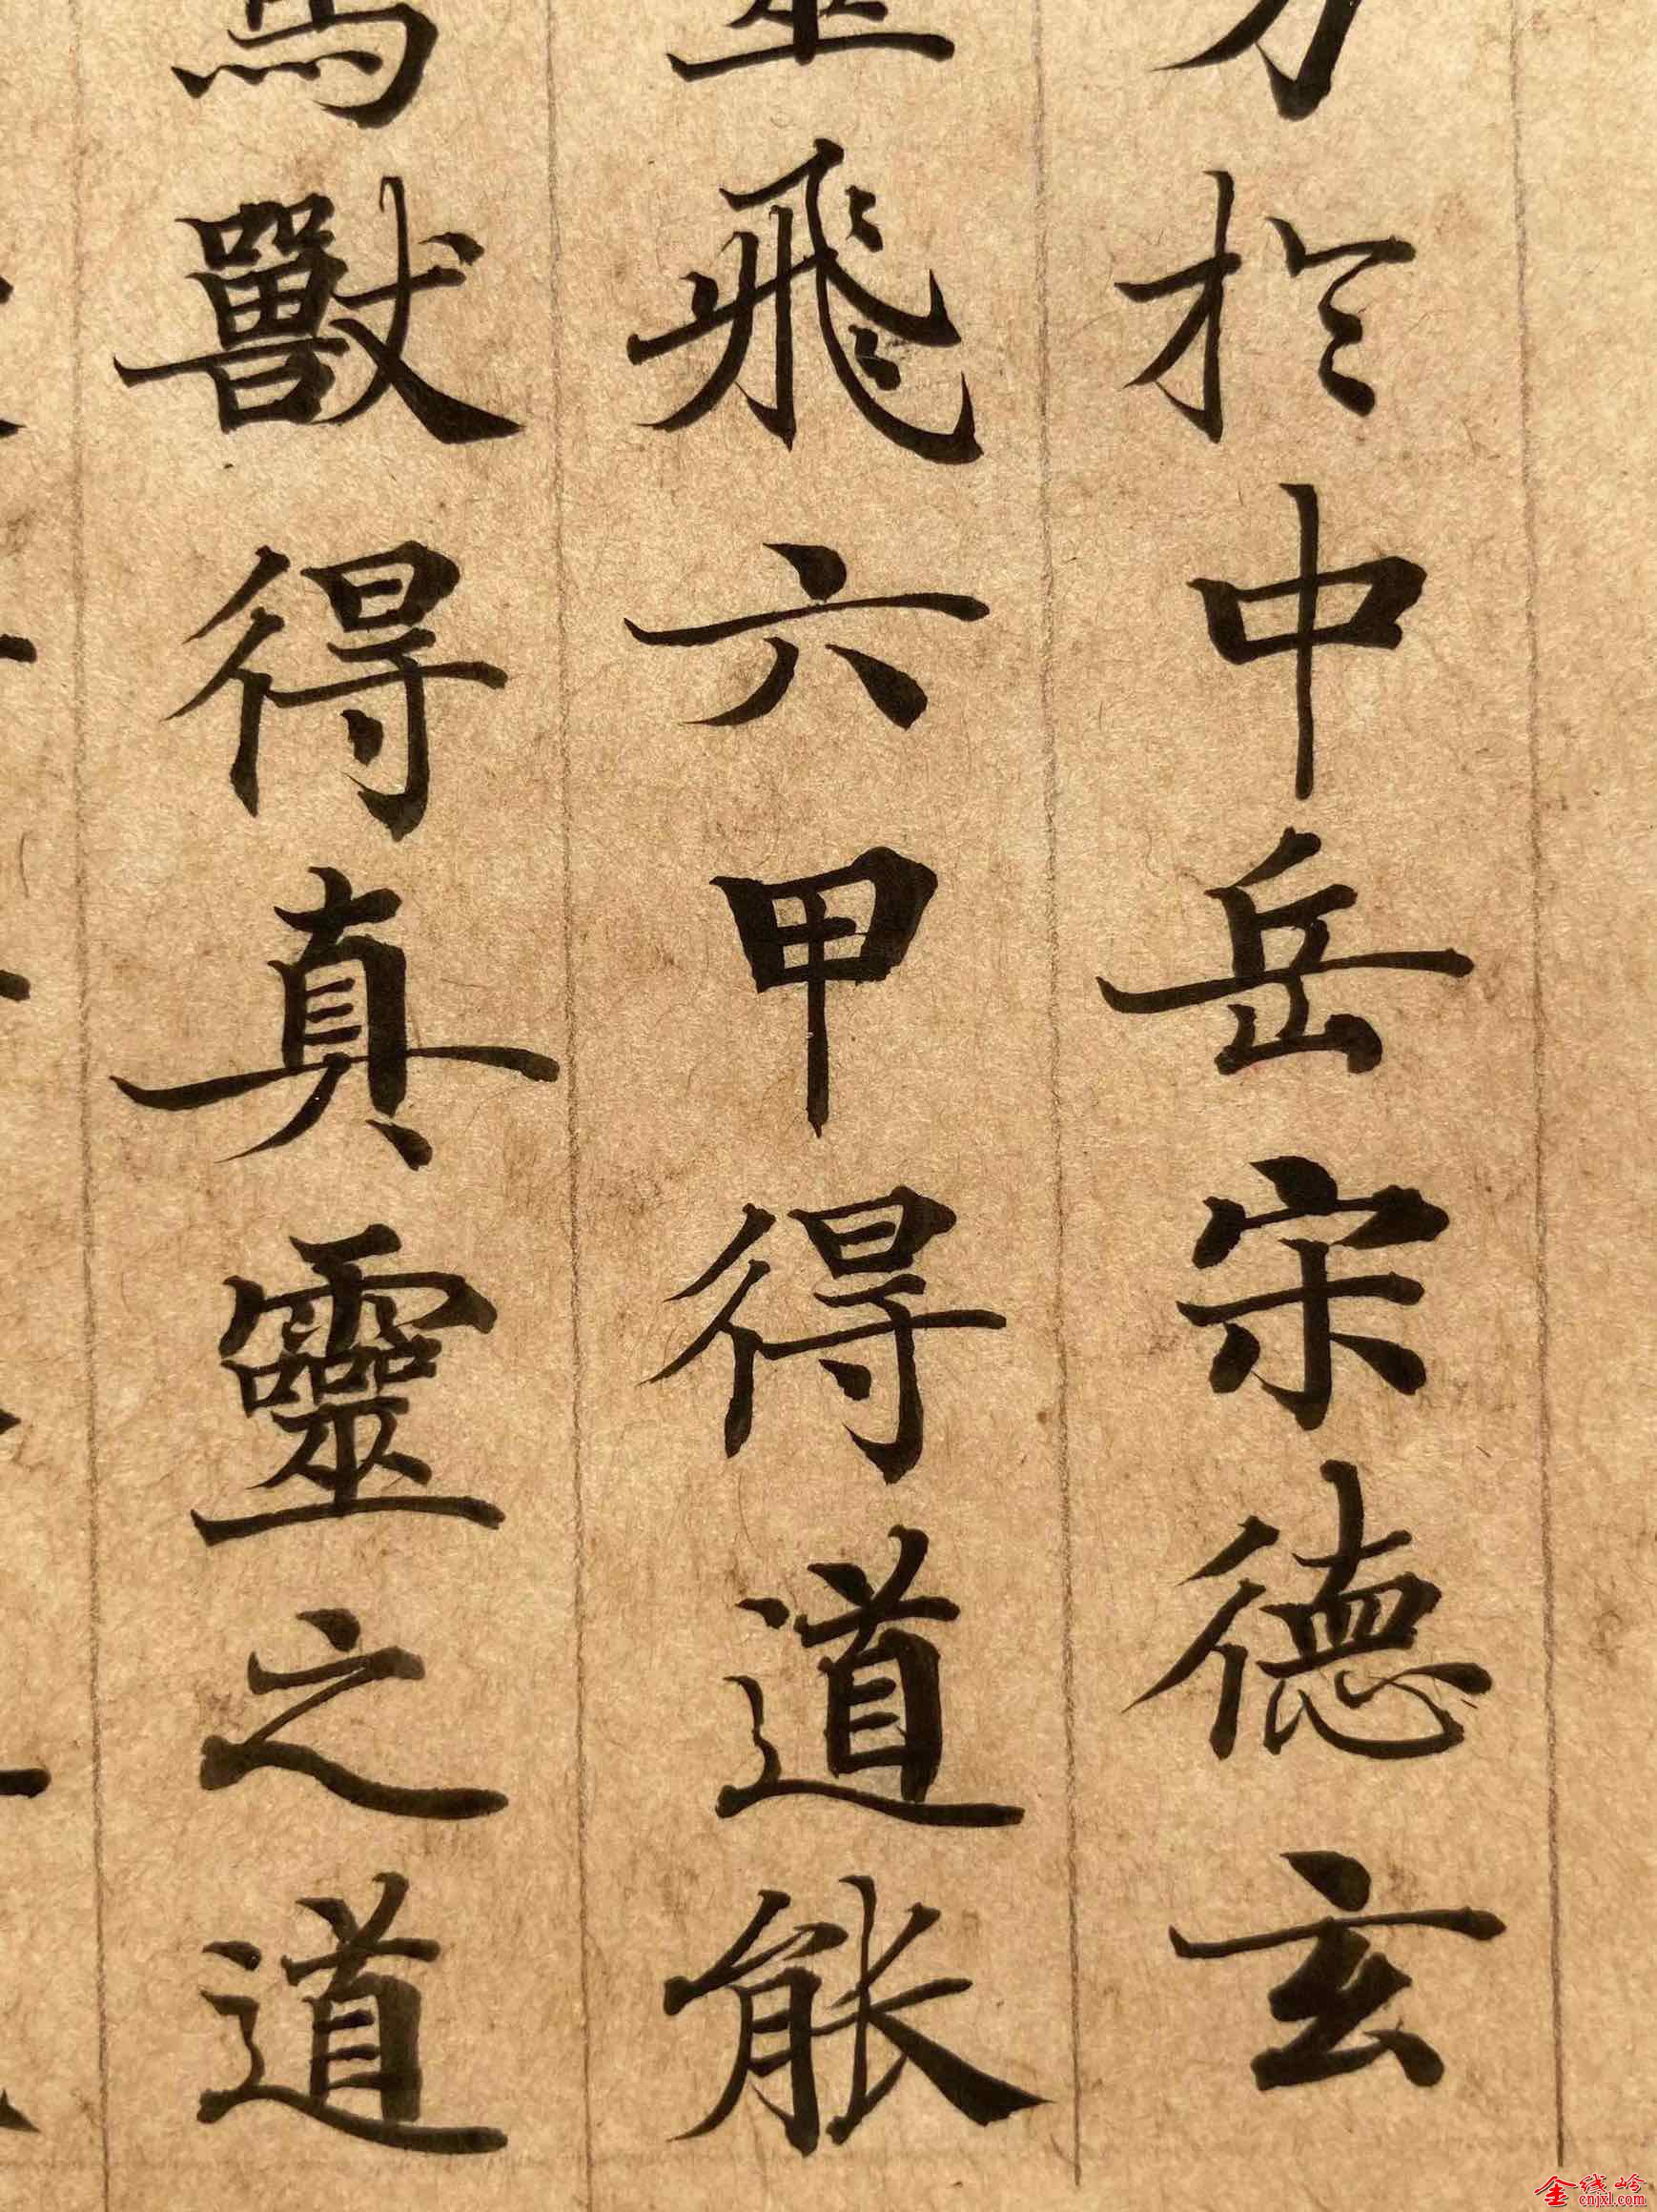 於中岳宗德玄
飛六甲得道能
獸得真靈之道
金线岭
cnjxl.com